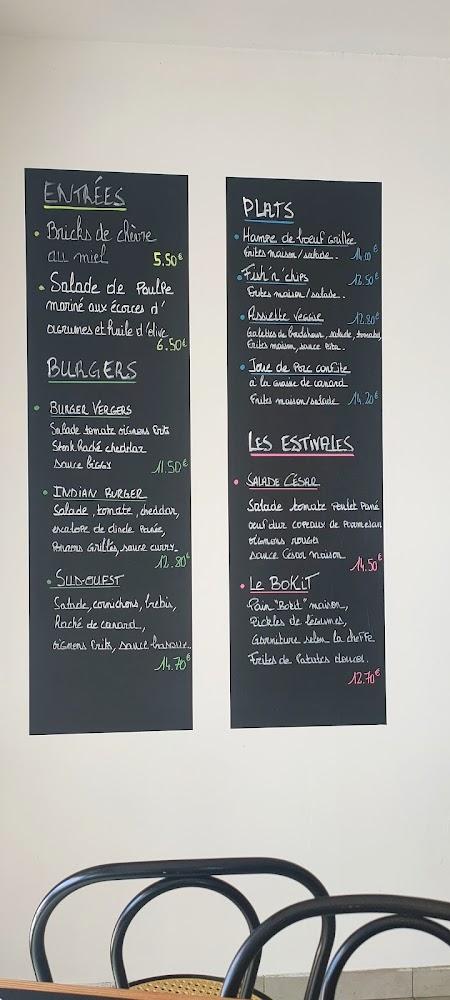 ENTRÉES
Bricks de chèvre
au miel 5.50€
Salade de Poulpe
mariné aux écorces d'
agrumes et huile d'olive
6.50€
BURGERS
BURGER VERGERS
Salade tomate oignons frits
Steak haché cheddar
sauce biggy 11.50€
INDIAN BURGER
Salade, tomate, cheddar,
escalope de dinde Panée,
Poivrons Grillés, sauce curry.
12.80€
SUD-OUEST
Salade, cornichons, brebis,
Haché de canard,
oignons frits, sauce
14.70€
PLATS
Hampe de boeuf Grillée
frites maison/salade. 14.00€
Fish'n'chips 12.50€
Frites maison/salade.
Assiette Veggie 12.80€
Galettes de boulghour, salade, tomates,
Frites maison, sauce Pita.
Joue de Porc confite
à la Graisse de canard
Frites maison/salade 14.20€
LES ESTIVALES
SALADE CÉSAR
Salade tomate Poulet Pané
oeuf dur copeaux de Parmesan
oignons rouges
sauce César maison 14.50€
Le BOKIT
Pain "Bokit" maison,
Pickles de légumes,
Garniture selon la cheffe
Frites de Patates douces.
12.70€